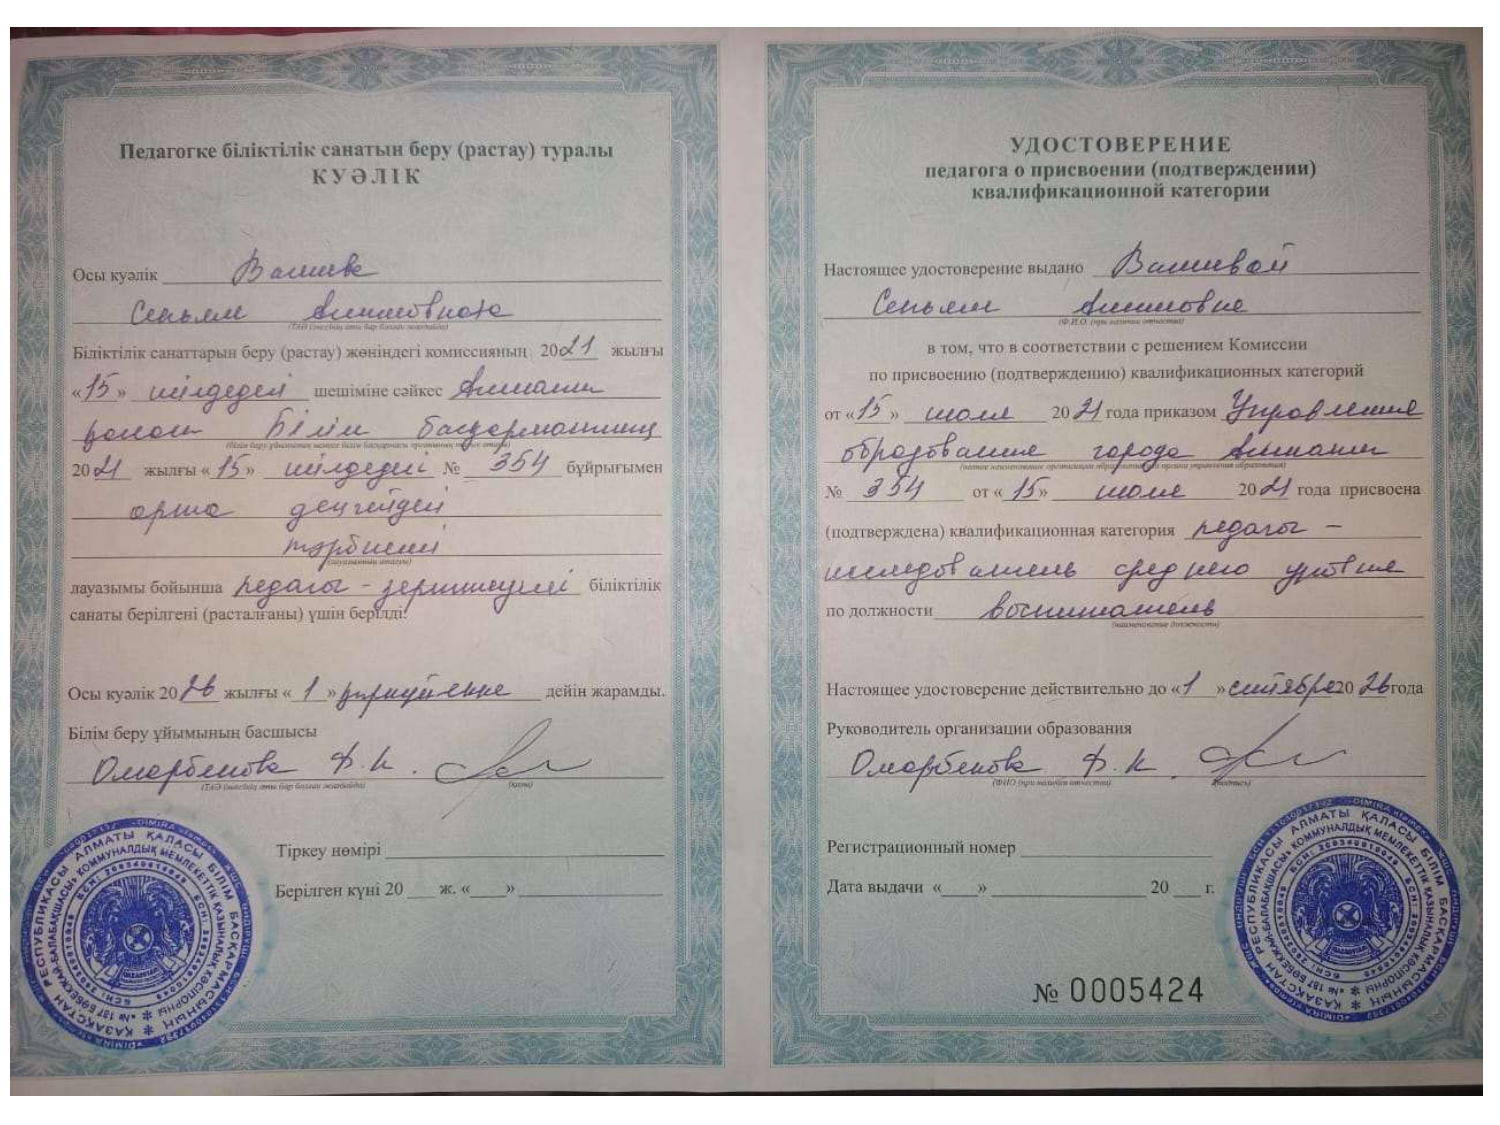 Педагогке біліктілік санатын беру (растау) туралы
КУӘЛІК
Осы куәлік Валиева
Сеньям Алимовнаға
(ТАӘ (әкесінің аты бар болған жағдайда)
Біліктілік санаттарын беру (растау) жөніндегі комиссияның 2021 жылғы
«15» шілдедегі шешіміне сәйкес Алматы
қаласы Білім басқармасының
2021 жылғы «15» шілдедегі № 354 бұйрығымен
орта деңгейдегі
тәрбиеші
(лауазымның атауы)
лауазымы бойынша педагог - зерттеуші біліктілік
санаты берілгені (расталғаны) үшін берілді.
Осы куәлік 2026 жылғы «1» қыркүйекке дейін жарамды.
Білім беру ұйымының басшысы
Омарбекова Ф.К.
(ТАӘ (әкесінің аты бар болған жағдайда) (қолы)
Тіркеу нөмірі
Берілген күні 20 ж. « »
УДОСТОВЕРЕНИЕ
педагога о присвоении (подтверждении)
квалификационной категории
Настоящее удостоверение выдано Валиевой
Сеньям Алимовне
(Ф.И.О. (при наличии отчества)
в том, что в соответствии с решением Комиссии
по присвоению (подтверждению) квалификационных категорий
от «15» июля 2021 года приказом Управления
образования города Алматы
(полное наименование организации образования или органа управления образования)
№ 354 от «15» июля 2021 года присвоена
(подтверждена) квалификационная категория педагог -
исследователь среднего уровня
по должности воспитатель
(наименование должности)
Настоящее удостоверение действительно до «1» сентября 2026 года
Руководитель организации образования
Омарбекова Ф.К.
(ФИО (при наличии отчества) (подпись)
Регистрационный номер
Дата выдачи « » 20 г.
№ 0005424